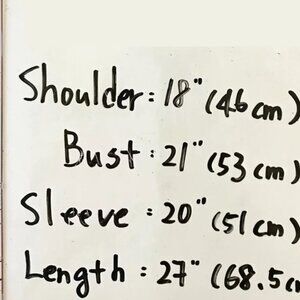 Shoulder : 18" (46 cm)
Bust : 21" (53 cm)
Sleeve : 20" (51 cm)
Length : 27" (68.5 c